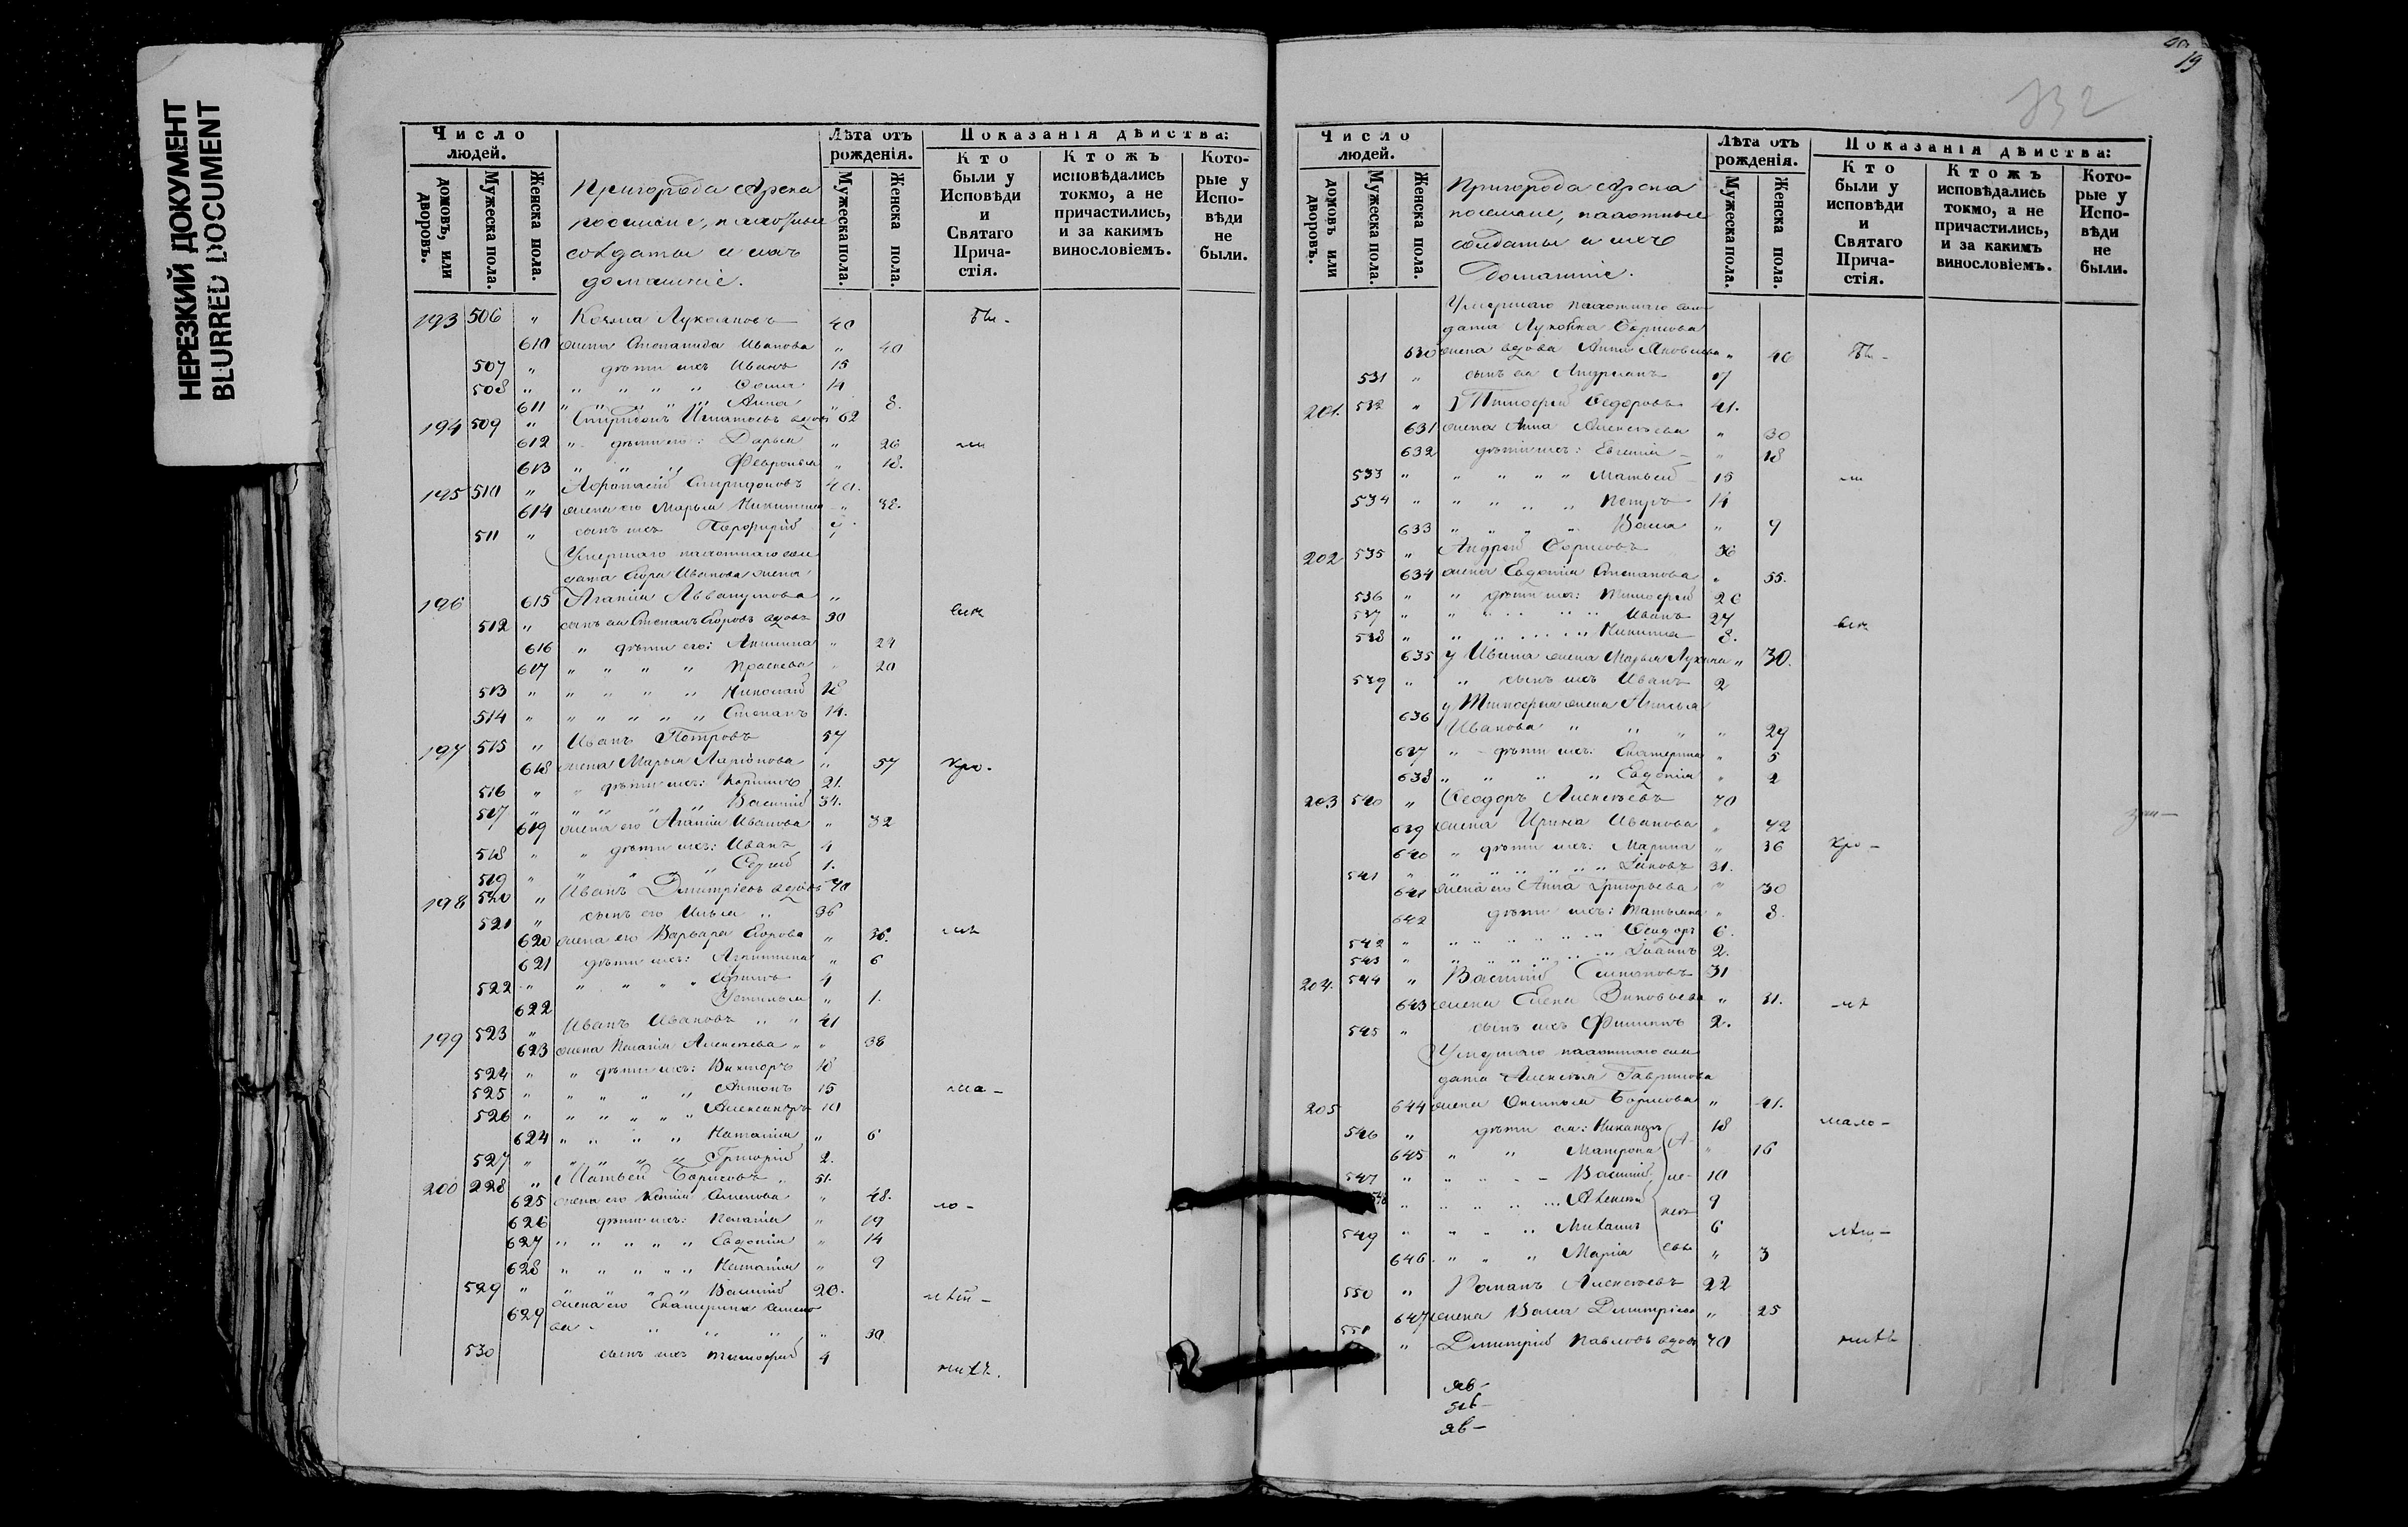 НЕРЕЗКИЙ ДОКУМЕНТ
BLURRED DOCUMENT
Число людей.
домовъ, или дворовъ.
Мужеска пола.
Женска пола.
Пригорода Арска
пахатные
солдаты и ихъ
домашніе.
Лѣта отъ рожденія.
Мужеска пола.
Женска пола.
Показанія дѣйства:
Кто были у Исповѣди и Святаго Прича-стія.
Ктожъ исповѣдались токмо, а не причастились, и за какимъ винословіемъ.
Кото-рые у Испо-вѣди не были.
193 506 " Козма Лукояновъ 40
610 жена Степанида Иванова " 40
507 " дѣти ихъ Иванъ 15
508 " " " " " 14
611 " " " " " Анна " 8.
194 509 " Спиридонъ Игнатьевъ вдовъ 62
612 " дѣти его: Дарья " 26
613 " " " Февронья " 18.
195 510 " Афонасій Спиридоновъ 40.
614 жена его Марья Никитина " 38.
511 " сынъ ихъ Порфирій
Умершаго пахотнаго сол
дата Егора Иванова жена
196 615 Агапія "
512 " сынъ ея Степанъ Егоровъ вдовъ 30
616 " дѣти его: "
617 " " " " Прасковья " 20
513 " " " " " Николай 18
514 " " " " " " Степанъ 14.
197 515 " Иванъ Петровъ 57
618 жена Марья Ларіонова " 57
516 " " дѣти ихъ: 21.
517 " " " " " Василій 34.
619 жена его Агапія Иванова " 32
518 " " дѣти ихъ: Иванъ 4
519 " " " " " 1.
198 520 " Иванъ Дмитріевъ вдовъ 70
521 " сынъ его Илья " 36
620 жена его Варвара Егорова " 36.
621 дѣти ихъ: Агрипина " 6
522 " " " " " 4
622 Устинья " 1.
199 523 " Иванъ Ивановъ " " 41
623 жена Пелагія Алексѣева " " 38
524 " " дѣти ихъ: Викторъ 18
525 " " " " " Антонъ 15
526 " " " " " " Александръ 10
624 " " " " Наталія " 6
527 " " " " " Григорій 2.
200 228 " Матвей Борисовъ " 51.
625 жена его Ксенія Семенова " 48.
626 дѣти ихъ: Пелагія " 19
627 " " " " " Евдокія " 14
628 " " " " " " Наталія " 9
529 " " " " " Василій 20.
629 жена его Екатерина Семено
ва " " " " " 30
530 сынъ ихъ Тимофей 4
19
732
Число людей.
домовъ или дворовъ.
Мужеска пола.
Женска пола.
Пригорода Арска
пахатные
солдаты и ихъ
домашніе.
Лѣта отъ рожденія.
Мужеска пола.
Женска пола.
Показанія дѣйства:
Кто были у исповѣди и Святаго Прича-стія.
Ктожъ исповѣдались токмо, а не причастились, и за какимъ винословіемъ.
Кото-рые у Испо-вѣди не были.
Умершаго пахотнаго сол
дата Борисова
630 жена вдова Анна Яковлева " 46
531 " сынъ ея Андріанъ 17
201. 532 " Тимофей Федоровъ 41.
631 жена Анна Алексѣева " 30
632 дѣти ихъ: Евгенія " 18
533 " " " " " Матвей 15
534 " " " " " Петръ 14
633 " " " " Васса " 7
202 535 " Андрей Борисовъ 56
634 жена Евдокія Степанова " 55.
536 " " дѣти ихъ: Тимофей 26
537 " " " " " " Иванъ 24
538 " " " " " " Никита 8.
635 у Ивана жена Марья Лукина " 30.
539 " " сынъ ихъ Иванъ 2
636 у Тимофея жена
Иванова " " " " 29
637 " дѣти ихъ: Екатерина " 5
638 " " " " Евдокія " 2
203 540 " Феодоръ Алексѣевъ 70
639 жена Ирина Иванова " 72
640 " дѣти ихъ: Марина " 36
541 " " " " " " Іаковъ 31.
641 жена его Анна Григорьева " 30
642 дѣти ихъ: Татьяна " 8.
542 " " " " " " Феодоръ 6.
543 " " " " " " Іоаннъ 2.
204. 544 " Василій Симоновъ 31
643 жена Елена Зиновьева " 31.
545 " сынъ ихъ Филиппъ 2.
Умершаго пахотнаго сол
дата Алексѣя Гаврилова
205 644 жена Борисова " 41.
546 " дѣти ея: Никандръ 18
645 " " Матрона " 16
547 " " " " Василій 10
548 " " " " " Алексѣй 9
549 " " " " Михаилъ 6
646 " " " Марія " 3
550 " Романъ Алексѣевъ 22
647 жена Васса Дмитріева " 25
551 " Дмитрій Павловъ вдовъ 70